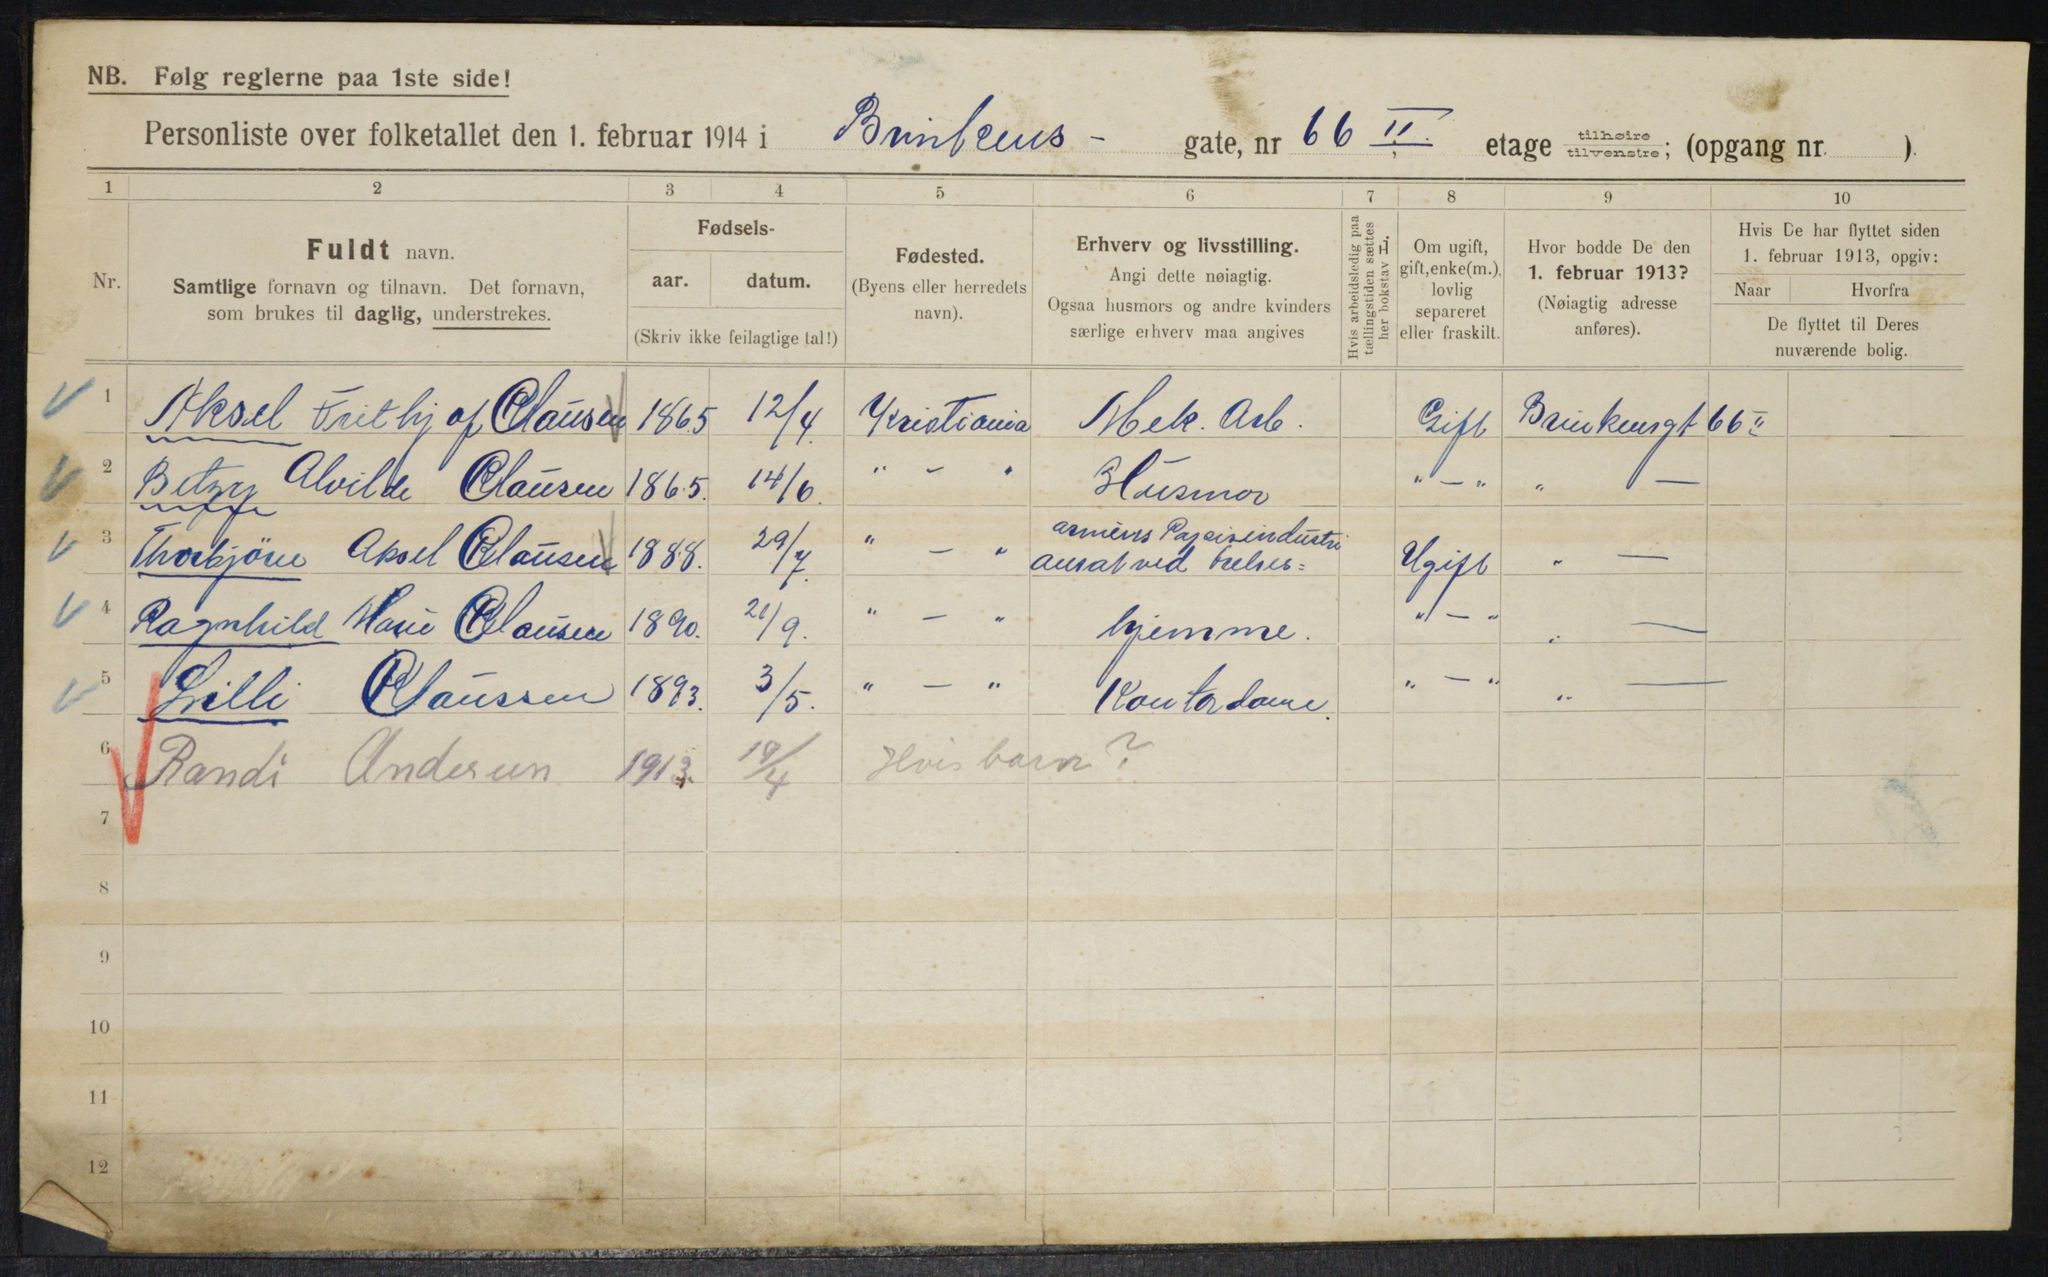 NB. Følg reglerne paa 1ste side!
Personliste over folketallet den 1. februar 1914 i Brinkens - gate, nr 66 II. etage tilhøire/tilvenstre; (opgang nr. ).
1 2 3 4 5 6 7 8 9 10
Nr.
Fuldt navn.
Samtlige fornavn og tilnavn. Det fornavn,
som brukes til daglig, understrekes.
Fødsels-
aar. datum.
(Skriv ikke feilagtige tal!)
Fødested.
(Byens eller herredets
navn).
Erhverv og livsstilling.
Angi dette nøiagtig.
Ogsaa husmors og andre kvinders
særlige erhverv maa angives
Hvis arbeidsledig paa
tællingstiden sættes
her bokstav L.
Om ugift,
gift, enke(m.),
lovlig
separeret
eller fraskilt.
Hvor bodde De den
1. februar 1913?
(Nøiagtig adresse
anføres).
Hvis De har flyttet siden
1. februar 1913, opgiv:
Naar Hvorfra
De flyttet til Deres
nuværende bolig.
1 Aksel Frithjof Clausen 1865 12/4. Kristiania Mek. Arb. Gift Brinkensgt 66 II
2 Betzy Alvilde Clausen 1865. 14/6. " - " Husmor " - " " -
3 Thorbjörn Aksel Clausen 1888. 29/7. " - " ansat ved frelses=
armeens Ugift " -
4 Ragnhild Marie Clausen 1890. 21/9. " - " hjemme. " - " " -
5 Lilli Claussen 1893. 3/5. " - " Kontordame. " - " " -
6 Randi Andersen 1913. 19/4 Hvis barn?
7
8
9
10
11
12